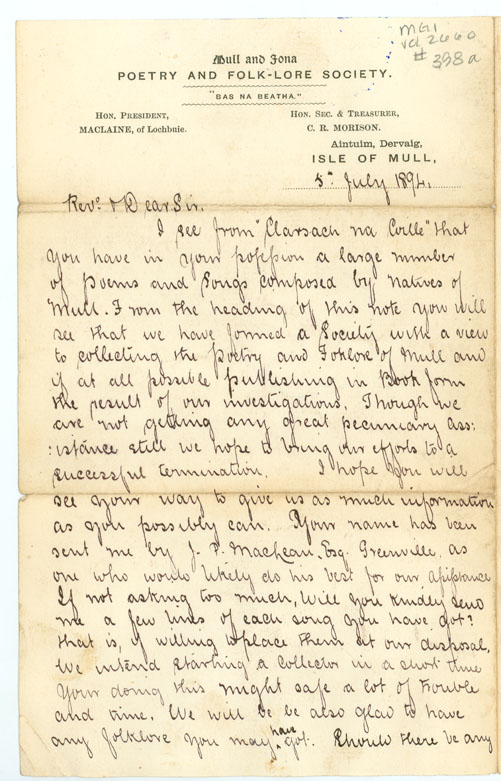 MG1
vol 2660
# 398a
Mull and Iona
POETRY AND FOLK-LORE SOCIETY.
"BAS NA BEATHA."
HON. PRESIDENT,
MACLAINE, of Lochbuie.
HON. SEC. & TREASURER,
C. R. MORISON.
Aintuim, Dervaig,
ISLE OF MULL,
5th July 1894.
Revd. & Dear Sir.
I see from "Clarsach na Coille" that
you have in your possession a large number
of Poems and Songs composed by natives of
Mull. From the heading of this note you will
see that we have formed a Society with a view
to collecting the Poetry and Foklore of Mull and
if at all possible publishing in Book form
the result of our investigations. Though we
are not getting any great pecuniary ass:
:istance still we hope to bring our efforts to a
successful termination. I hope you will
see your way to give us as much information
as you possibly can. Your name has been
sent me by J. P. MacLean, Esq. Greenville, as
one who would likely do his best for our assistance
If not asking too much, Will you kindly send
me a few lines of each song you have got?
that is, if willing to place them at our disposal,
We intend starting a collector in a short time
Your doing this might safe a lot of trouble
and time. We will be be also glad to have
any folklore you may have got. Should there be any